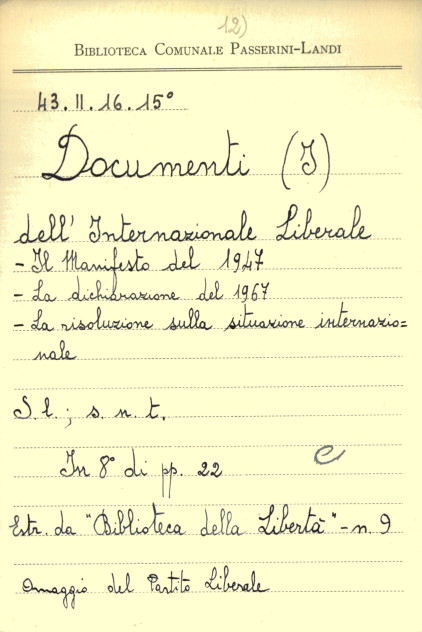 12)
BIBLIOTECA COMUNALE PASSERINI-LANDI
43.II.16.15°
Documenti (I)
dell' Internazionale Liberale
- Il Manifesto del 1947
- La dichiarazione del 1967
- La risoluzione sulla situazione internazio=
nale
S. l. ; s. n. t.
In 8° di pp. 22
e
Estr. da "Biblioteca della Libertà" - n. 9
Omaggio del Partito Liberale